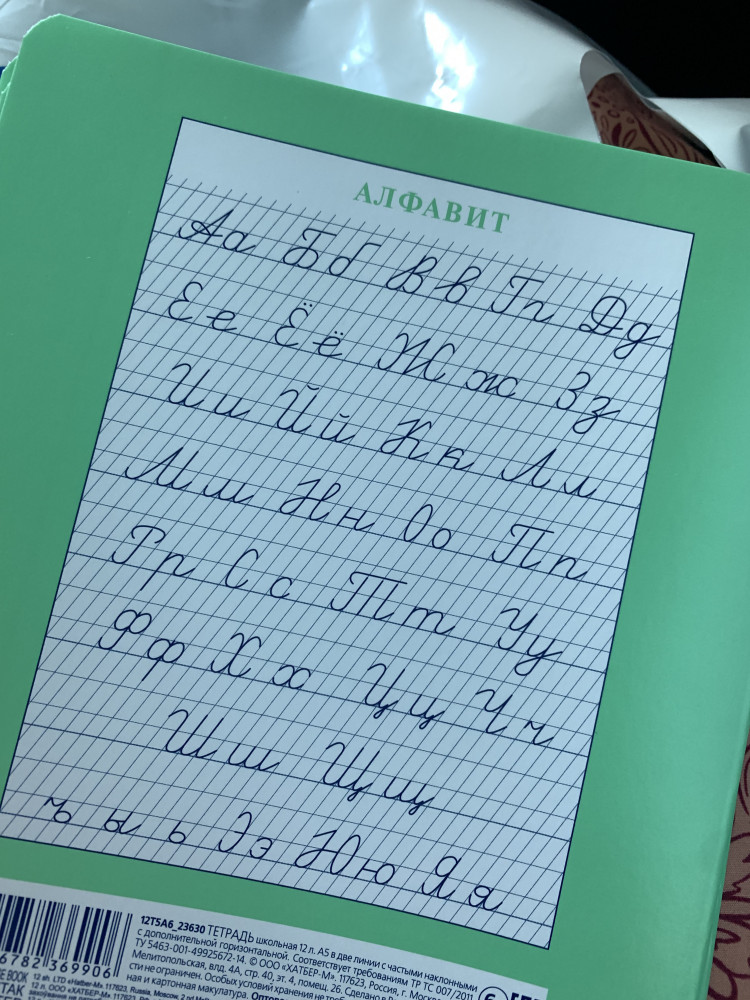 АЛФАВИТ
Аа Бб Вв Гг Дд
Ее Ёё Жж Зз
Ии Йй Кк Лл
Мм Нн Оо Пп
Рр Сс Тт Уу
Фф Хх Цц Чч
Шш Щщ
ъ ы ь Ээ Юю Яя
12Т5А6_23630 ТЕТРАДЬ школьная 12 л. А5 в две линии с частыми наклонными
с дополнительной горизонтальной. Соответствует требованиям ТР ТС 007/2011
ТУ 5463-001-49925672-14. © ООО «ХАТБЕР-М». 117623, Россия, г. Москва
Мелитопольская, влд. 4А, стр. 40, эт. 4, помещ. 26. Сделано в
сти не ограничен. Особых условий хранения не
ная и картонная макулатура.
6782 369906
E BOOK 12 sh. LTD «Hatber-M». 117623, Russia, Moscow,
ТАК 12 п. ООО «ХАТБЕР-М». 117623,